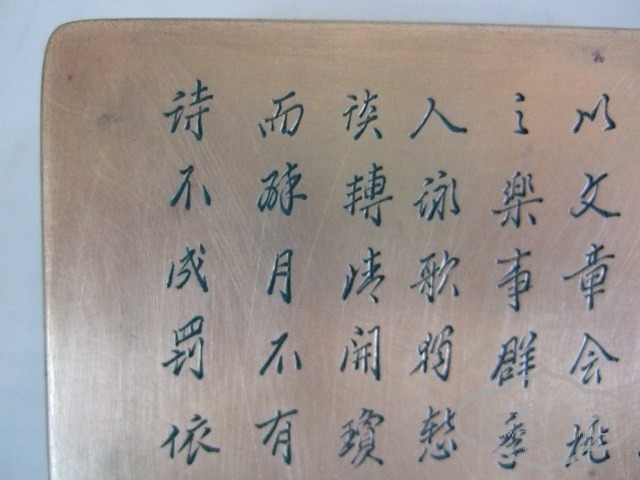 以文章会桃
之樂事群季
人詠歌獨慙
談轉清開瓊
而醉月不有
詩不成罰依